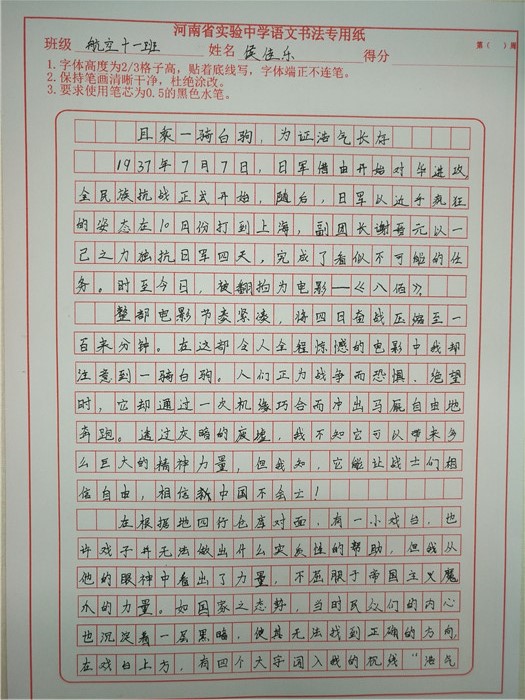 河南省实验中学语文书法专用纸
班级 航空十一班 姓名 侯佳乐 得分 第( )周
1. 字体高度为2/3格子高，贴着底线写，字体端正不连笔。
2. 保持笔画清晰干净，杜绝涂改。
3. 要求使用笔芯为0.5的黑色水笔。
且乘一骑白驹，为证浩气长存
1937年7月7日，日军借由开始对华进攻
全民族抗战正式开始，随后，日军以近乎疯狂
的姿态在10月份打到上海，副团长谢晋元以一
己之力独抗日军四天，完成了看似不可能的任
务。时至今日，被翻拍为电影——《八佰》
整部电影节奏紧凑，将四日奋战压缩至一
百来分钟。在这部令人全程惊憾的电影中我却
注意到一骑白驹。人们正为战争而恐惧、绝望
时，它却通过一次机缘巧合而冲出马厩自由地
奔跑。透过灰暗的废墟，我不知它可以带来多
么巨大的精神力量，但我知，它能让战士们相
信自由，相信新中国不会亡！
在根据地四行仓库对面，有一小戏台，也
许戏子并无法做出什么实质性的帮助，但我从
他的眼神中看出了力量，不屈服于帝国主义魔
爪的力量。如国家之态势，当时民众们的内心
也沉淀着一层黑暗，使其无法找到正确的方向，
在戏台上方，有四个大字闯入我的视线“浩气